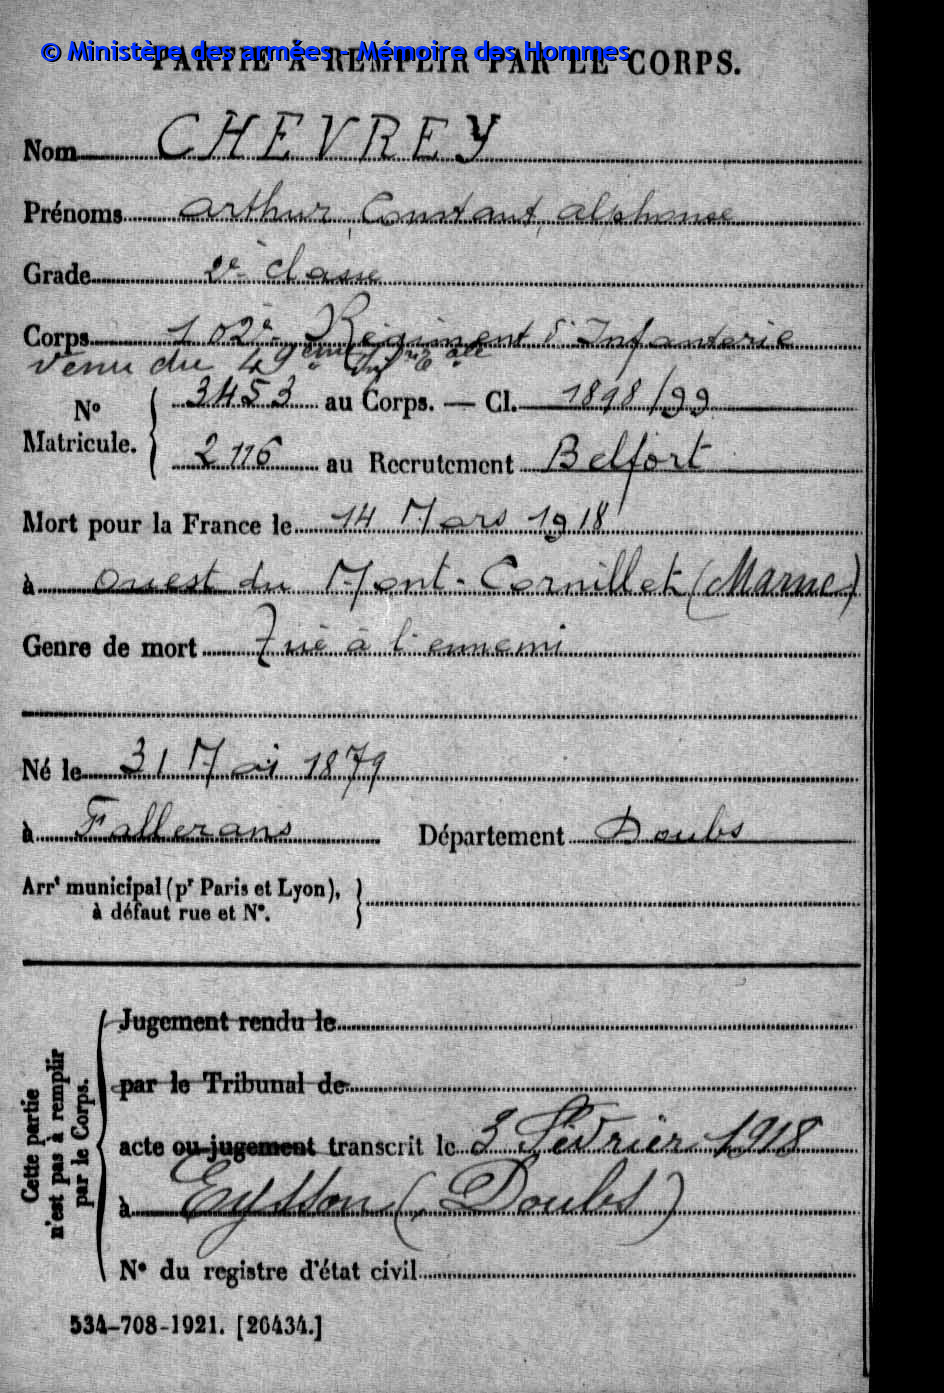 © Ministère des armées - Mémoire des Hommes
PARTIE À REMPLIR PAR LE CORPS.
Nom CHEVREY
Prénoms Arthur, Constant, Alphonse
Grade 2e classe
Corps 102e Régiment d'Infanterie
Venu du 49ème
No Matricule. 3453 au Corps. — Cl. 1898/99
2116 au Recrutement Belfort
Mort pour la France le 14 Mars 1918
à ouest du Mont-Cornillet (Marne)
Genre de mort Tué à l'ennemi
Né le 31 Mai 1879
à Fallerans Département Doubs
Arrt municipal (pr Paris et Lyon),
à défaut rue et No.
Cette partie n'est pas à remplir par le Corps.
Jugement rendu le
par le Tribunal de
acte ou jugement transcrit le 3 Février 1918
à Eysson (Doubs)
No du registre d'état civil
534-708-1921. [26434.]